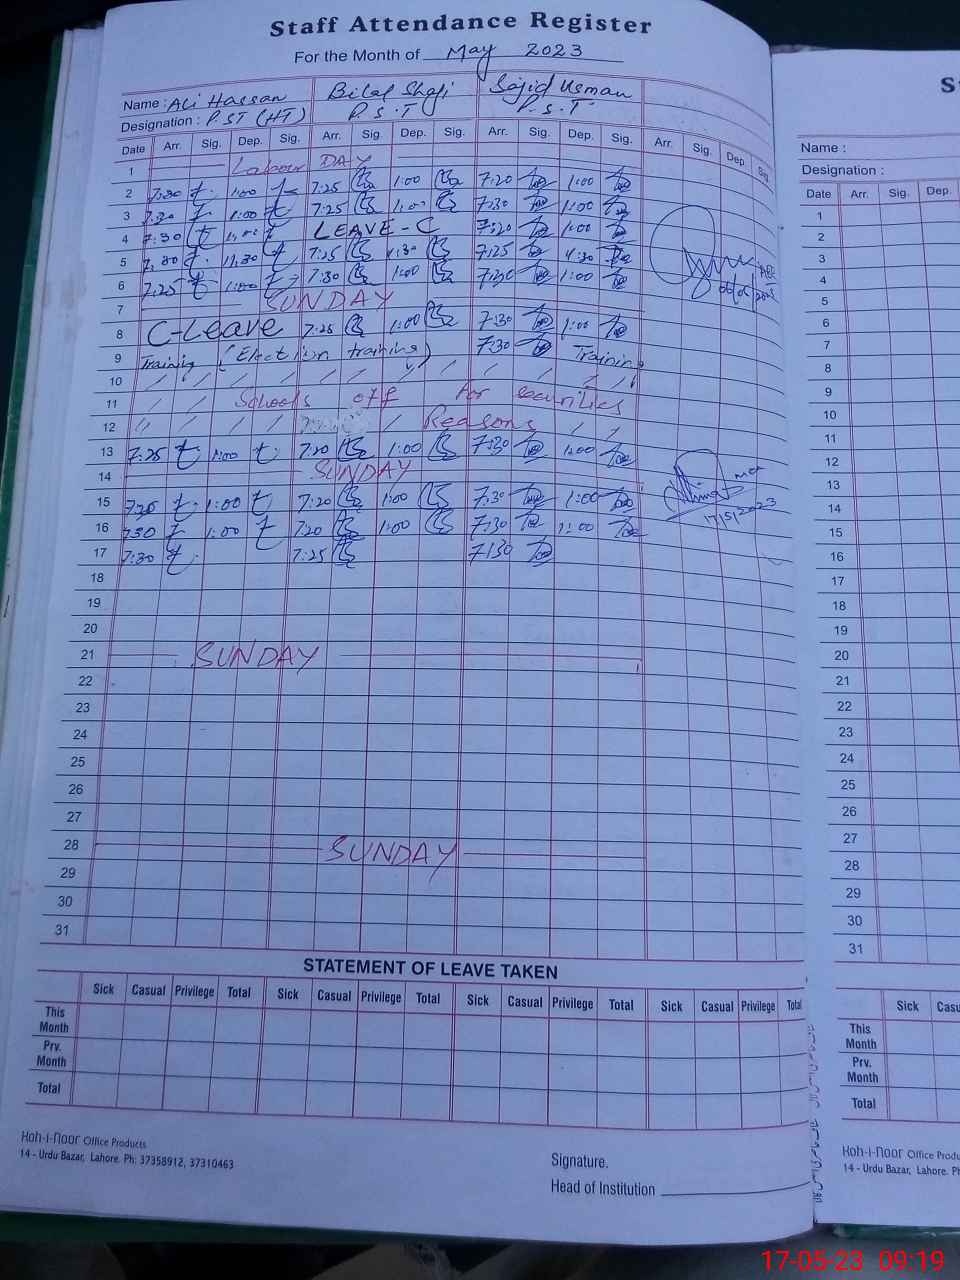 Staff Attendance Register
For the Month of May 2023
Name : Ali Hassan Bilal Shafi Sajid Usman
Designation : P.ST (HT) P.S.T P.S.T
Date Arr. Sig. Dep. Sig. Arr. Sig. Dep. Sig. Arr. Sig. Dep. Sig. Arr. Sig. Dep. Sig.
1 Labour DAY
2 7:30 1:00 7:25 1:00 7:20 1:00
3 7:30 1:00 7:25 1:00 7:30 1:00
4 7:30 1:00 LEAVE-C 7:20 1:00
5 7:30 11:30 7:25 11:30 7:25 11:30
6 7:25 1:00 7:30 1:00 7:30 1:00
7 SUNDAY
8 C-Leave 7:25 1:00 7:30 1:00
9 Training (Election training) 7:30 Training
10
11 Schools off For securities
12 Reasons
13 7:25 1:00 7:20 1:00 7:30 1:00
14 SUNDAY
15 7:25 1:00 7:20 1:00 7:30 1:00
16 7:30 1:00 7:20 1:00 7:30 1:00
17/5/2023
17 7:30 7:25 7:30
18
19
20
21 SUNDAY
22
23
24
25
26
27
28 SUNDAY
29
30
31
STATEMENT OF LEAVE TAKEN
Sick Casual Privilege Total Sick Casual Privilege Total Sick Casual Privilege Total Sick Casual Privilege Total
This Month
Prv. Month
Total
Koh-i-Noor Office Products
14 - Urdu Bazar, Lahore. Ph: 37358912, 37310463
Signature.
Head of Institution
S
Name :
Designation :
Date Arr. Sig. Dep.
1
2
3
4
5
6
7
8
9
10
11
12
13
14
15
16
17
18
19
20
21
22
23
24
25
26
27
28
29
30
31
Sick Casu
This Month
Prv. Month
Total
Koh-i-Noor Office Produ
14 - Urdu Bazar, Lahore. P
17-05-23 09:19